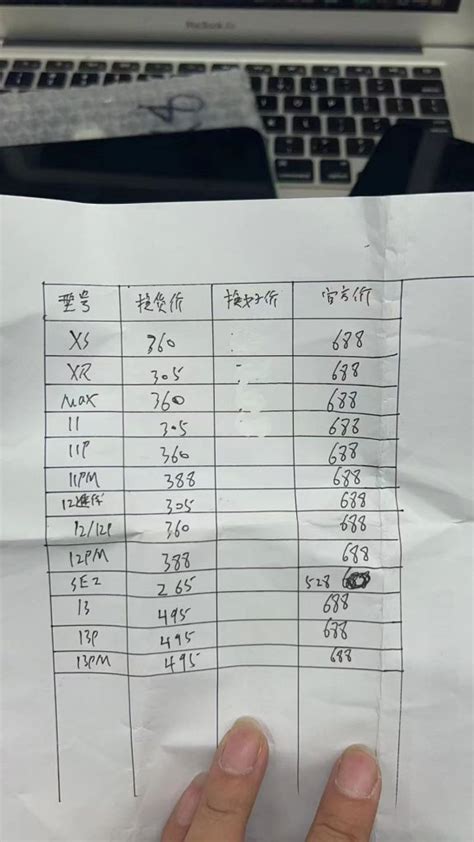 MacBook Air
型号 换货价 换好价 官方价
XS 360 688
XR 305 688
MAX 360 688
11 305 688
11P 360 688
11PM 388 688
12迷你 305 688
12/12P 360 688
12PM 388 688
SE2 265 528
13 495 688
13P 495 688
13PM 495 688